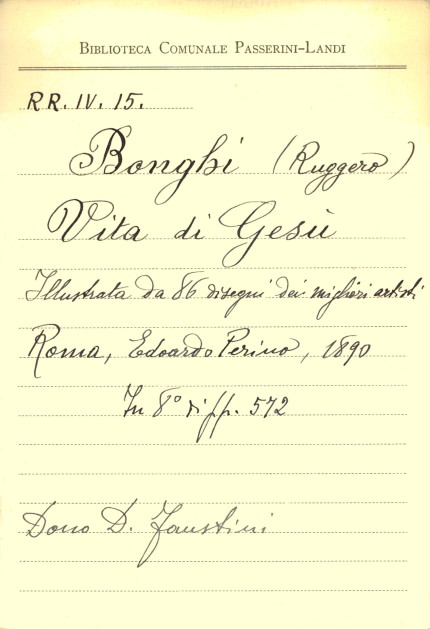 Biblioteca Comunale Passerini-Landi
RR. IV. 15.
Bonghi (Ruggero)
Vita di Gesù
Illustrata da 86 disegni dei migliori artisti
Roma, Edoardo Perino, 1890
In 8° di pp. 572
Dono D. Faustini